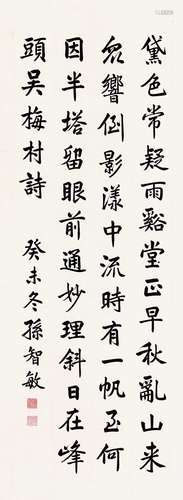 黛色常疑雨谿堂正早秋亂山來
衆響倒影漾中流時有一帆至何
因半塔留眼前通妙理斜日在峰
頭吳梅村詩 癸未冬孫智敏